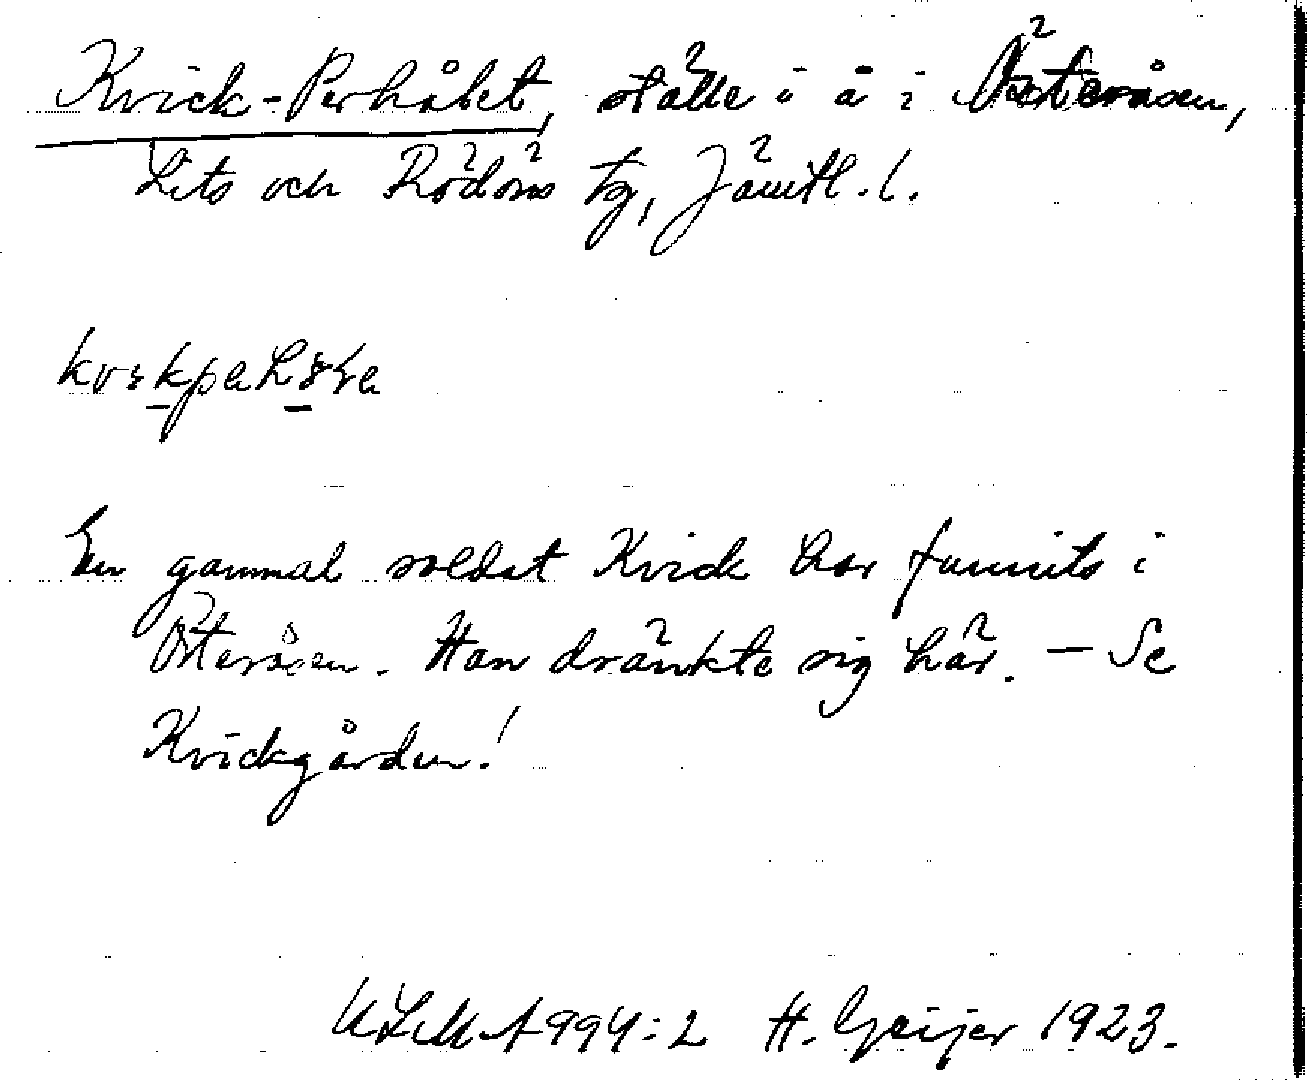 Kvick-Perhålet, ställe i å i Österåsen,
Lits och Rödöns tg, Jämtl. l.
En gammal soldat Kvick har funnits i
Österåsen. Han dränkte sig här. – Se
Kvickgården!
ULMA 994:2 H. Geijer 1923.